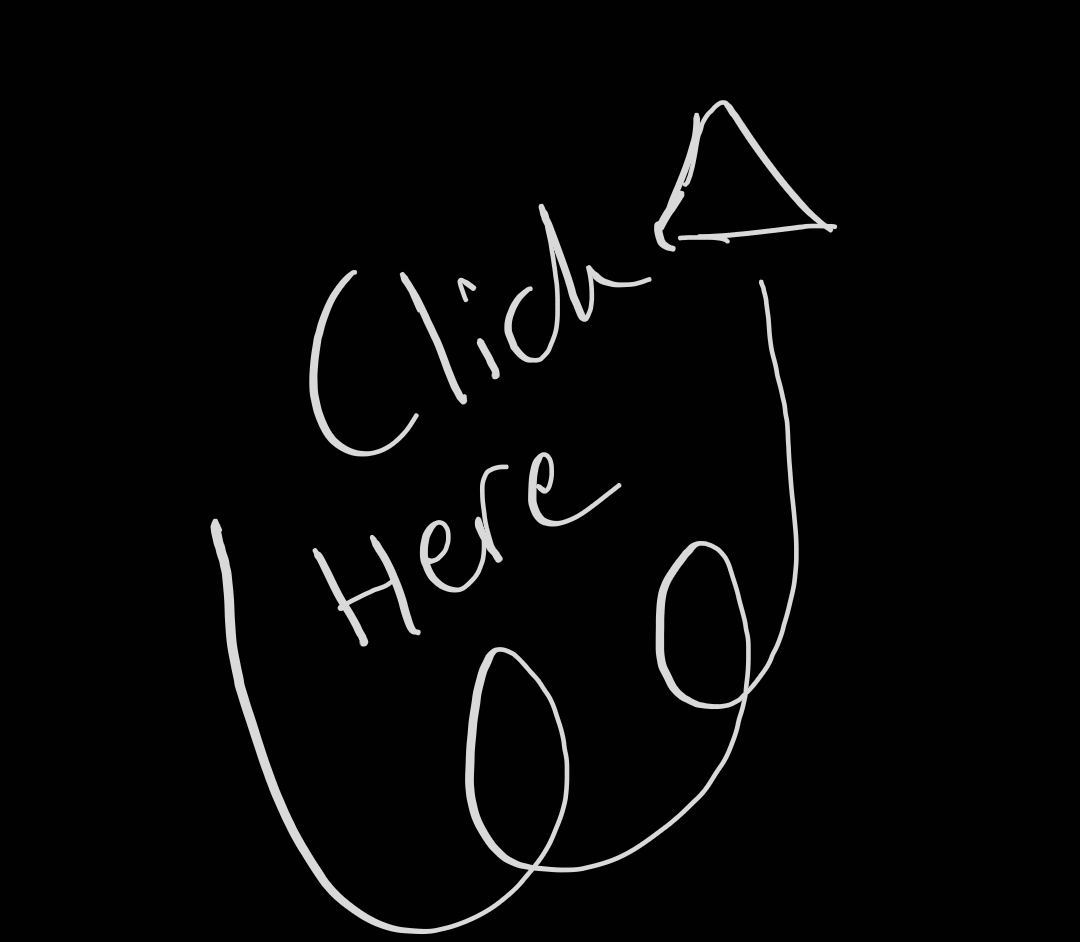 Click
Here